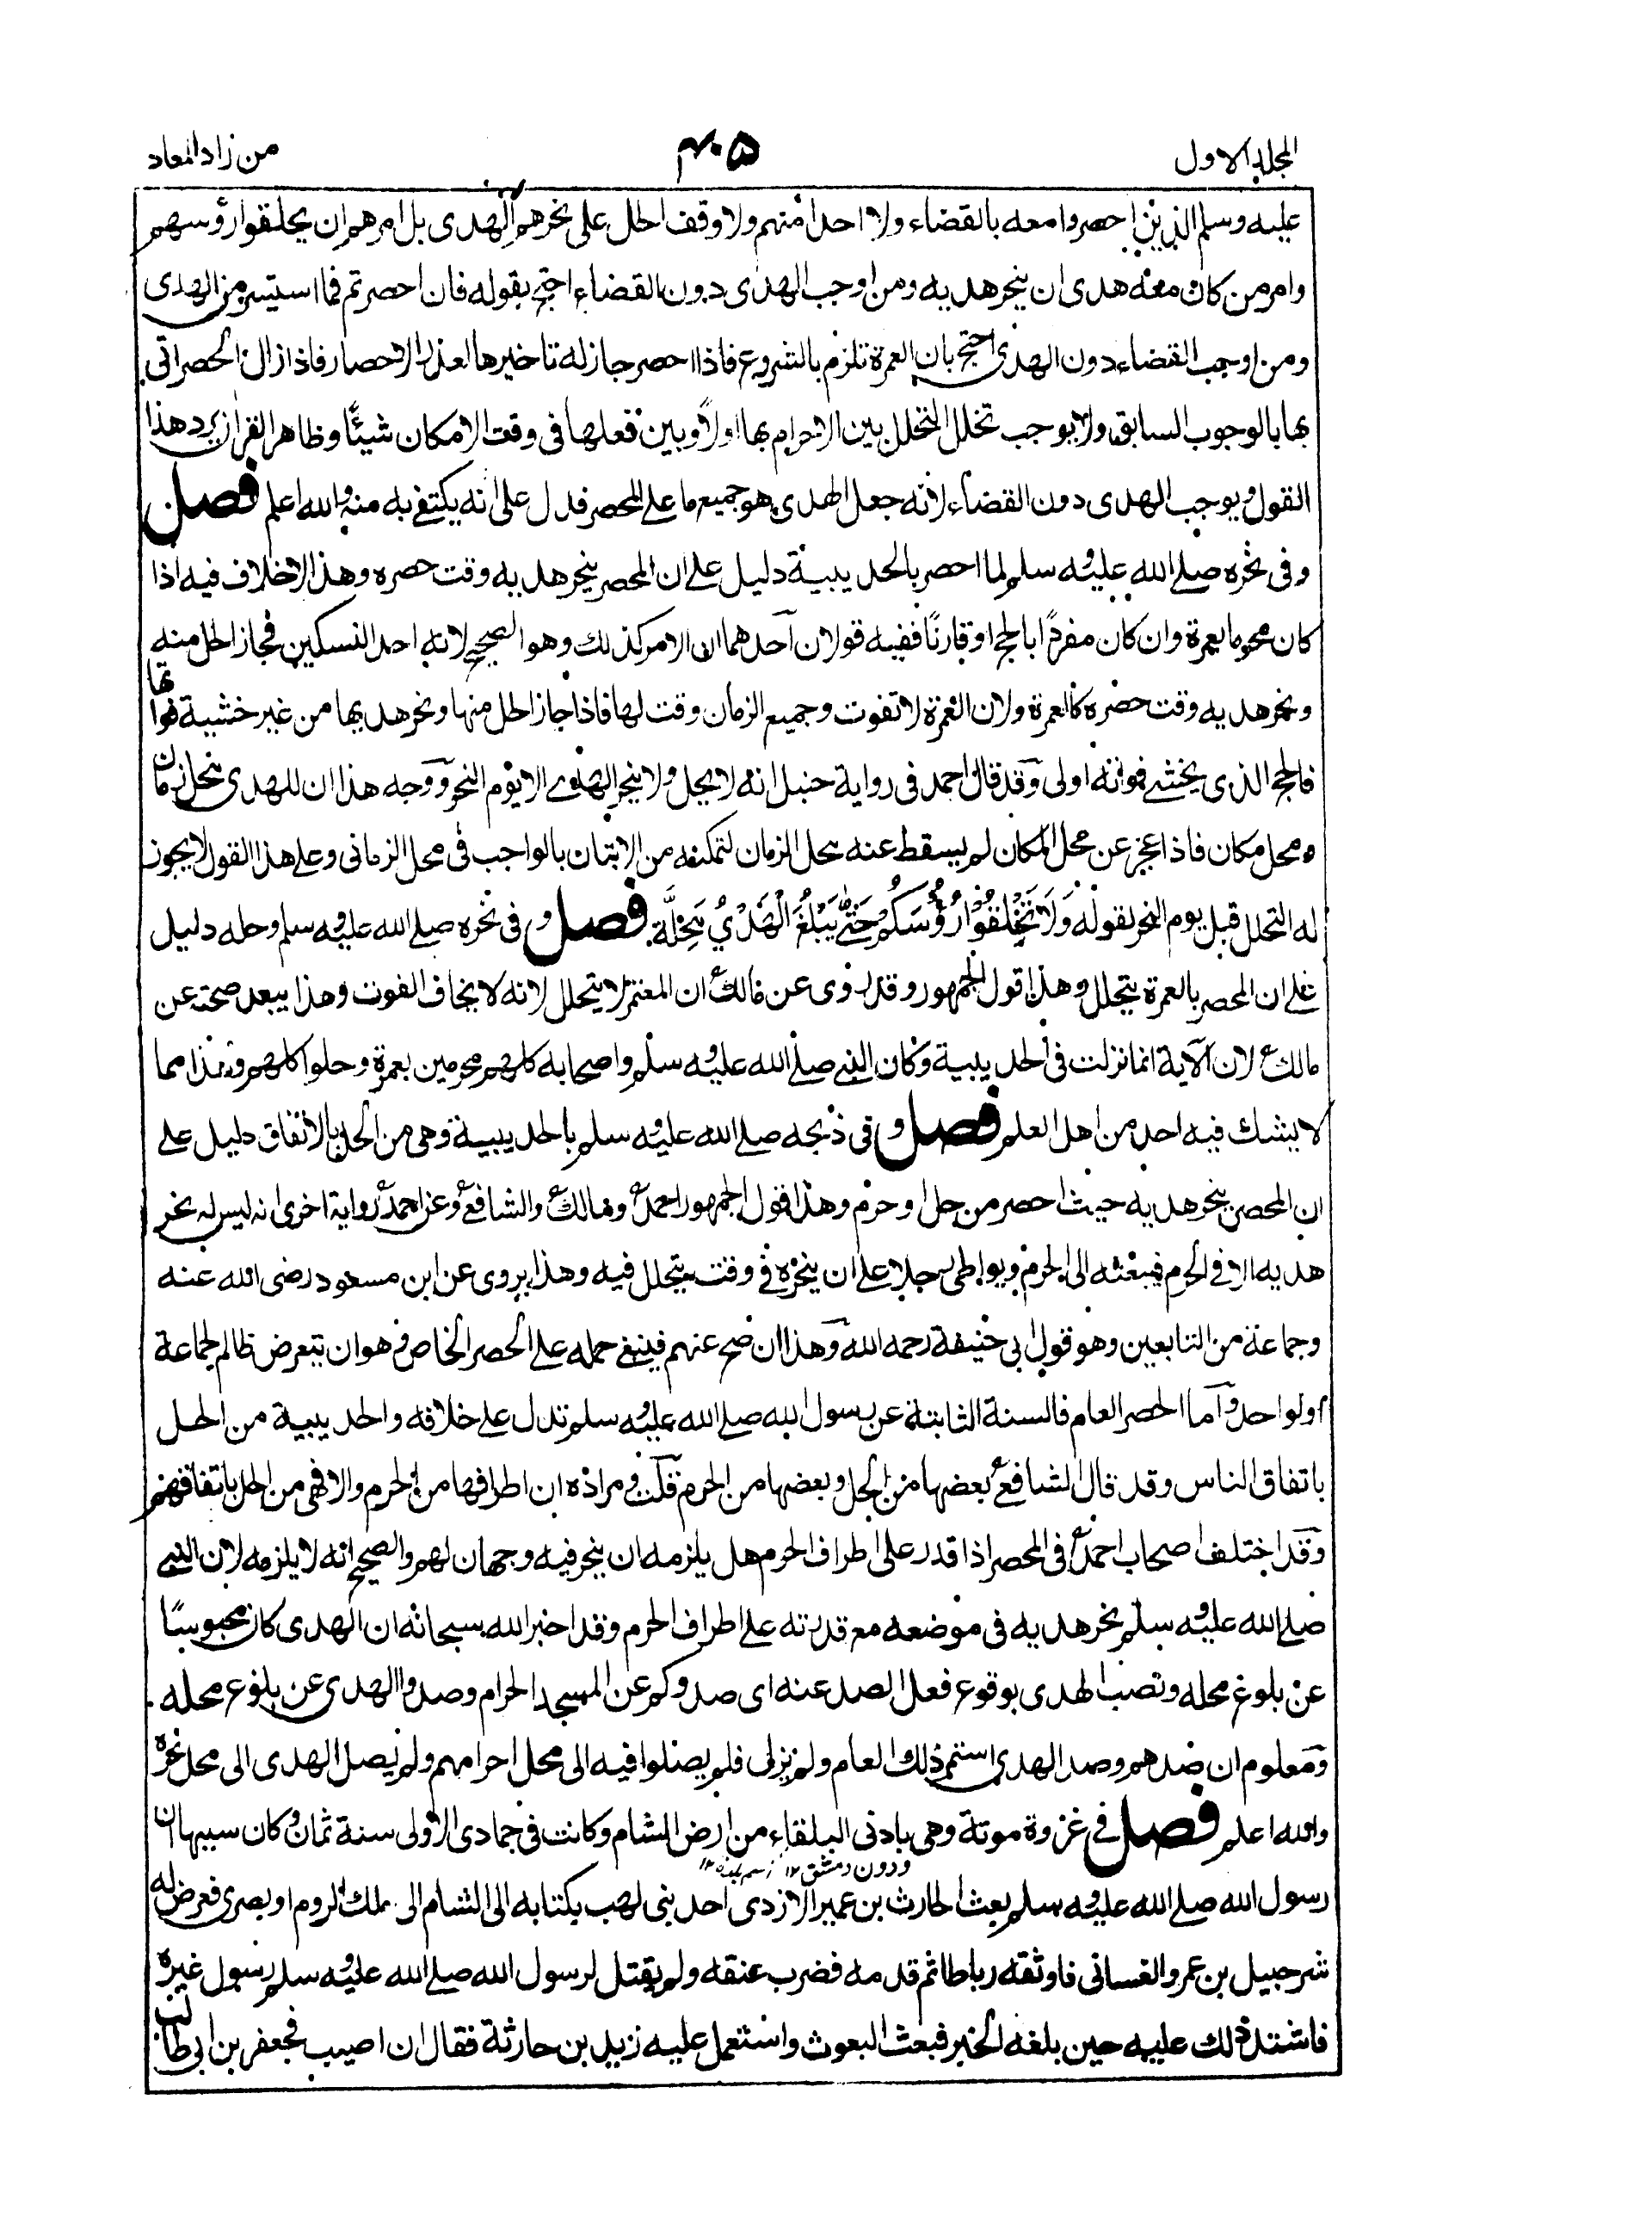 المجلد الاول
٤٠٥
من زاد المعاد
عليه وسلم الذين احصروا معه بالقضاء ولا احدا منهم ولا وقف الحل على نحرهم الهدى بل امرهم ان يحلقوا رؤسهم
وامر من كان معه هدى ان ينحر هديه ومن اوجب الهدى دون القضاء احتج بقوله فان احصرتم فما استيسر من الهدى
ومن اوجب القضاء دون الهدى احتج بان العمرة تلزم بالشروع فاذا احصر جازله تاخيرها لعذر الاحصار فاذا زال الحصر اتى
بها بالوجوب السابق ولا يوجب تخلل التحلل بين الاحرام بها اولاً وبين فعلها فى وقت الامكان شيئًا وظاهر القران يرد هذا
القول ويوجب الهدى دون القضاء لانه جعل الهدى هو جميع ما على المحصر فدل على انه يكتفى به منه والله اعلم فصل
وفى نحره صلى الله عليه وسلم لما احصر بالحديبية دليل على ان المحصر ينحر هديه وقت حصره وهذا لاخلاف فيه اذا
كان محرما بعمرة وان كان مفردًا بالحج او قارنًا ففيه قولان احدهما ان الامر كذلك وهو الصحيح لانه احد النسكين فجاز الحل منه
ونحر هديه وقت حصره كالعمرة ولان العمرة لاتفوت وجميع الزمان وقت لها فاذا جاز الحل منها ونحر هديها من غير خشية فواتها
فالحج الذى يخشى فواته اولى وقد قال احمد فى رواية حنبل انه لا يحل ولا ينحر الهدى الا يوم النحر ووجه هذا ان للهدى محل زمان
ومحل مكان فاذا عجز عن محل المكان لم يسقط عنه محل الزمان لتمكنه من الاتيان بالواجب فى محل الزمانى وعلى هذا القول لايجوز
له التحلل قبل يوم النحر لقوله وَلَا تَحْلِقُوْا رُؤُسَكُمْ حَتّٰى يَبْلُغَ الْهَدْيُ مَحِلَّهُ فصل وفى نحره صلى الله عليه وسلم وحله دليل
على ان المحصر بالعمرة يتحلل وهذا قول الجمهور وقد روى عن مالك ان المعتمر لا يتحلل لانه لا يخاف الفوت وهذا يبعد صحته عن
مالك لان الآية انما نزلت فى الحديبية وكان النبى صلى الله عليه وسلم واصحابه كلهم محرمين بعمرة وحلوا كلهم وهذا مما
لا يشك فيه احد من اهل العلم فصل وفى ذبحه صلى الله عليه وسلم بالحديبية وهى من الحل بالاتفاق دليل على
ان المحصر ينحر هديه حيث احصر من حل او حرم وهذا قول الجمهور احمد ومالك والشافعى وعن احمد رواية اخرى انه ليس له نحر
هديه الا فى الحرم فيبعثه الى الحرم ويواطى رجلا على ان ينحره فى وقت يتحلل فيه وهذا يروى عن ابن مسعود رضى الله عنه
وجماعة من التابعين وهو قول ابى حنيفة رحمه الله وهذا ان صح عنهم فينبغى حمله على الحصر الخاص وهو ان يتعرض ظالم لجماعة
اولواحد واما الحصر العام فالسنة الثابتة عن رسول الله صلى الله عليه وسلم تدل على خلافه والحديبية من الحل
باتفاق الناس وقد قال الشافعى بعضها من الحل وبعضها من الحرم قلت ومراده ان اطرافها من الحرم والا فهى من الحل باتفاقهم
وقد اختلف اصحاب احمد فى المحصر اذا قدر على اطراف الحرم هل يلزمه ان ينحر فيه وجهان لهم والصحيح انه لا يلزمه لان النبى
صلى الله عليه وسلم نحر هديه فى موضعه مع قدرته على اطراف الحرم وقد اخبر الله سبحانه ان الهدى كان محبوسًا
عن بلوغ محله ونصب الهدى بوقوع فعل الصد عنه اى صدوكم عن المسجد الحرام وصدوا الهدى عن بلوغ محله
ومعلوم ان صدهم وصد الهدى استمر ذلك العام ولم يزل فلم يصلوا فيه الى محل احرامهم ولم يصل الهدى الى محل نحره
والله اعلم فصل فى غزوة موتة وهى بادنى البلقاء من ارض الشام وكانت فى جمادى الاولى سنة ثمان وكان سببها ان
ودون دمشق ١٢
رسول الله صلى الله عليه وسلم بعث الحارث بن عمير الازدى احد بنى لهب بكتابه الى الشام الى ملك الروم او بصرى فعرض له
شرحبيل بن عمرو الغسانى فاوثقه رباطا ثم قدمه فضرب عنقه ولم يقتل لرسول الله صلى الله عليه وسلم رسول غيره
فاشتد ذلك عليه حين بلغه الخبر فبعث البعوث واستعمل عليه زيد بن حارثة فقال ان اصيب فجعفر بن ابى طالب